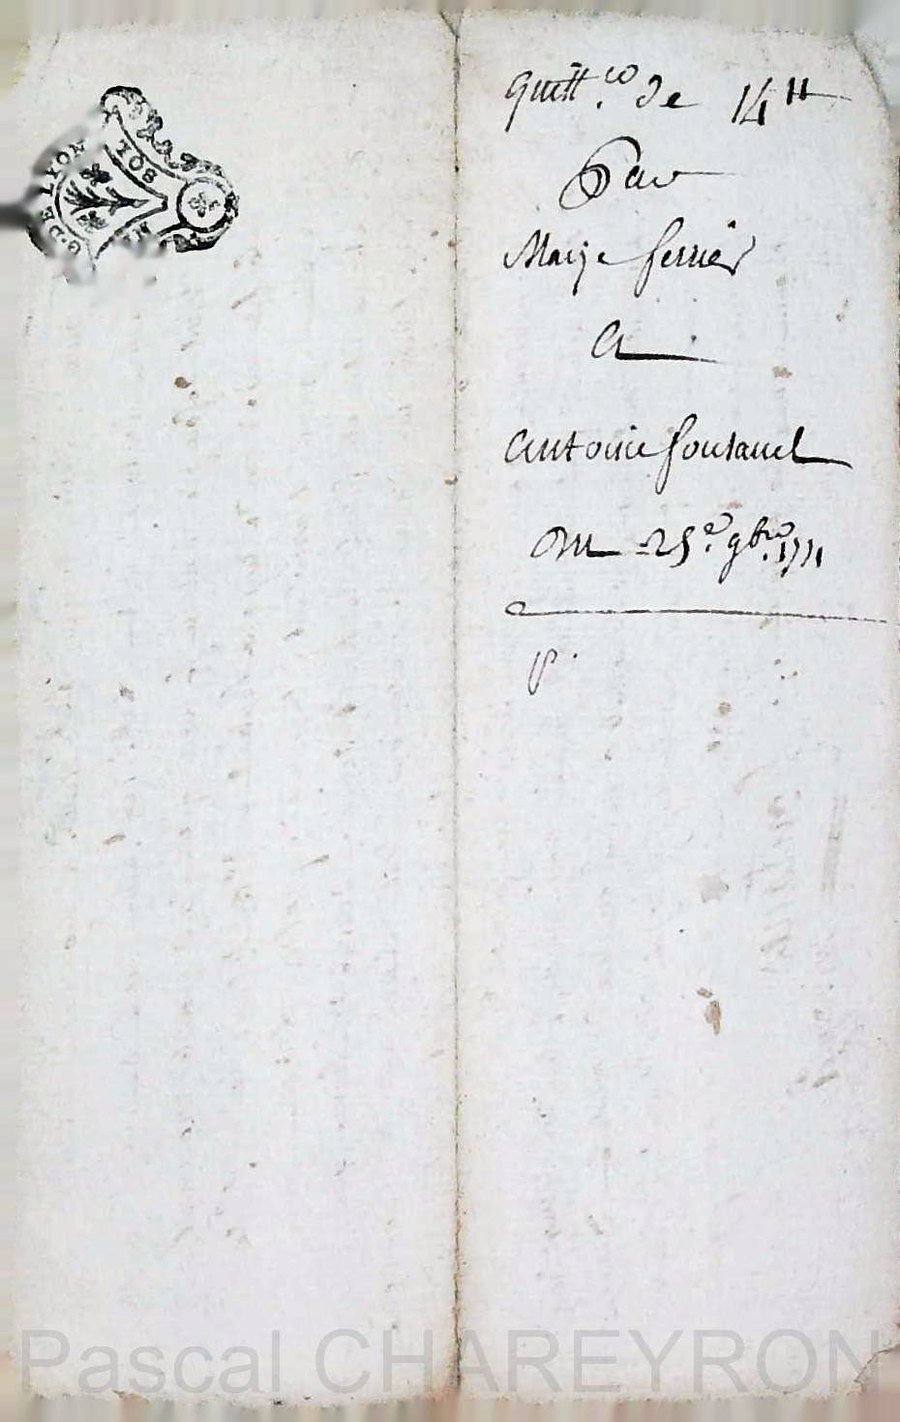 G. DE LYON
SOL
Quitt.ce de 14 ₶
Par
Marie ferrier
A
Antoine fontanel
Du 25.e 9bre. 1771
Pascal CHAREYRON